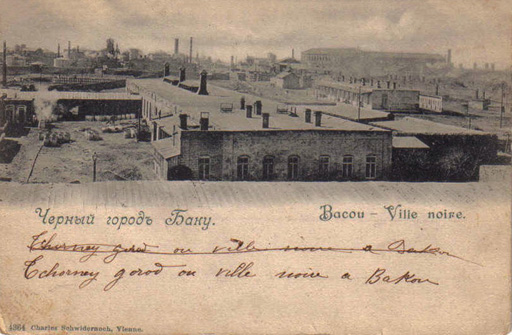 Черный городъ Баку.
Bacou – Ville noire.
Tchorney gorod ou ville noire a Bakou
Tchorney gorod ou ville noire a Bakou
4364 Charles Schwidernoch, Vienne.